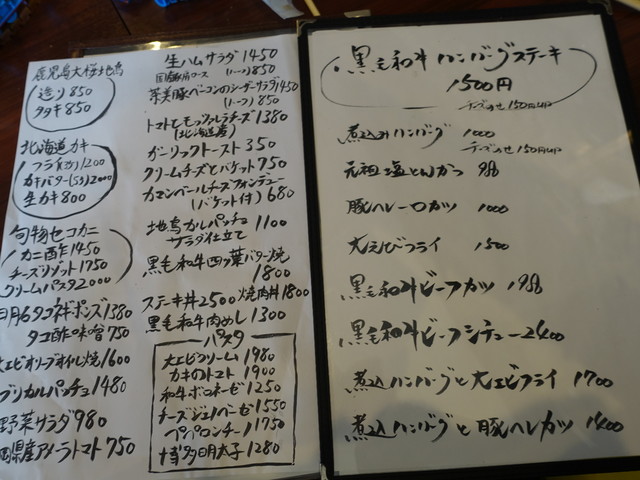 鹿児島大桜地鳥
造り 850
タタキ 850
北海道カキ
フライ 1200
カキバター 2000
生カキ 800
旬物セコカニ
カニ酢 1450
チーズリゾット 1750
クリームパスタ 2000
タコネギポンズ 1380
タコ酢味噌 750
大エビオリーブオイル焼 1600
ブリカルパッチョ 1480
野菜サラダ 980
岡県産アメーラトマト 750
生ハムサラダ 1450
(ハーフ) 850
茶美豚ベーコンのシーザーサラダ 1450
(ハーフ) 850
トマトとモッツァレラチーズ 1380
(北海道産)
ガーリックトースト 350
クリームチーズとバケット 750
カマンベールチーズフォンデュー
(バケット付) 680
地鳥カルパッチョ 1100
サラダ仕立て
黒毛和牛四ツ葉バター焼
1800
ステーキ丼 2500 焼肉丼 1800
黒毛和牛肉めし 1300
パスタ
大エビクリーム 1980
カキのトマト 1900
和牛ボロネーゼ 1250
チーズジェノベーゼ 1550
ペペロンチーノ 1750
博多明太子 1280
黒毛和牛ハンバーグステーキ
1500円
チーズのせ 150円UP
煮込みハンバーグ 1000
チーズのせ 150円UP
元祖塩とんかつ 980
豚ヘレ一口カツ 1000
大えびフライ 1500
黒毛和牛ビーフカツ 1980
黒毛和牛ビーフシチュー 2400
煮込ハンバーグと大エビフライ 1700
煮込ハンバーグと豚ヘレカツ 1400